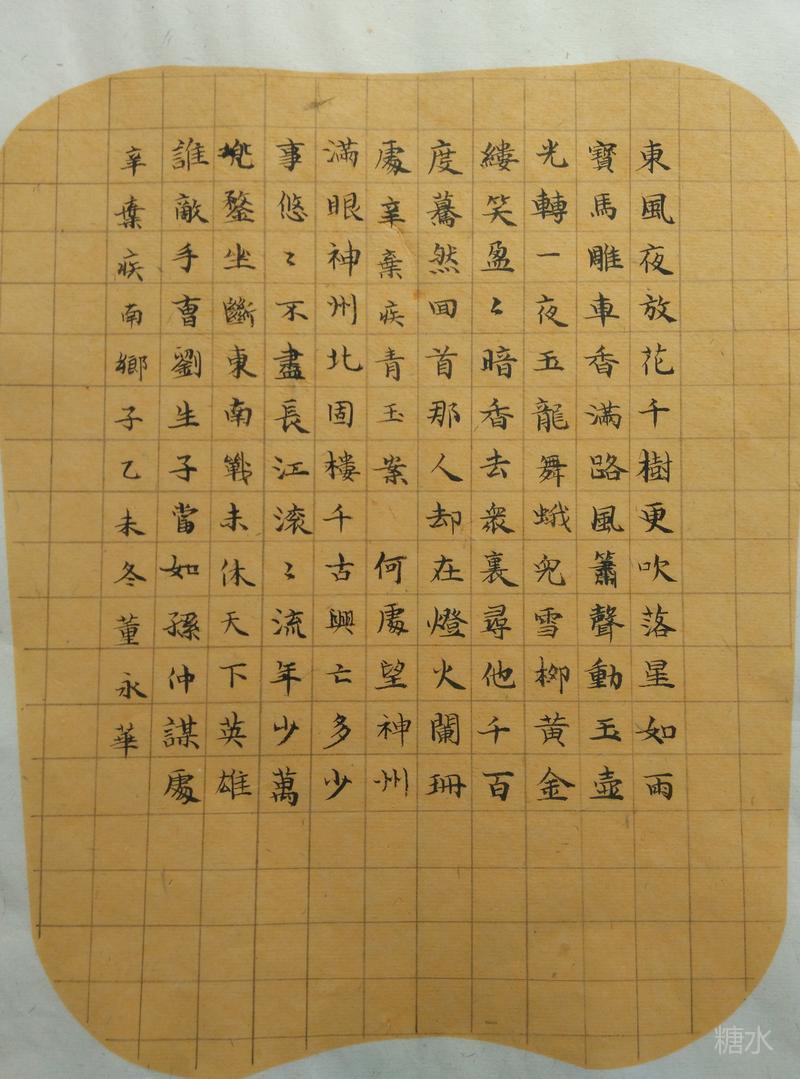 東風夜放花千樹更吹落星如雨
寶馬雕車香滿路風簫聲動玉壺
光轉一夜玉龍舞蛾兒雪柳黃金
縷笑盈〻暗香去衆裏尋他千百
度驀然回首那人却在燈火闌珊
處辛棄疾青玉案 何處望神州
滿眼神州北固樓千古興亡多少
事悠〻不盡長江滚〻流年少萬
兜鍪坐斷東南戰未休天下英雄
誰敵手曹劉生子當如孫仲謀處
辛棄疾南鄉子乙未冬董永華
糖水